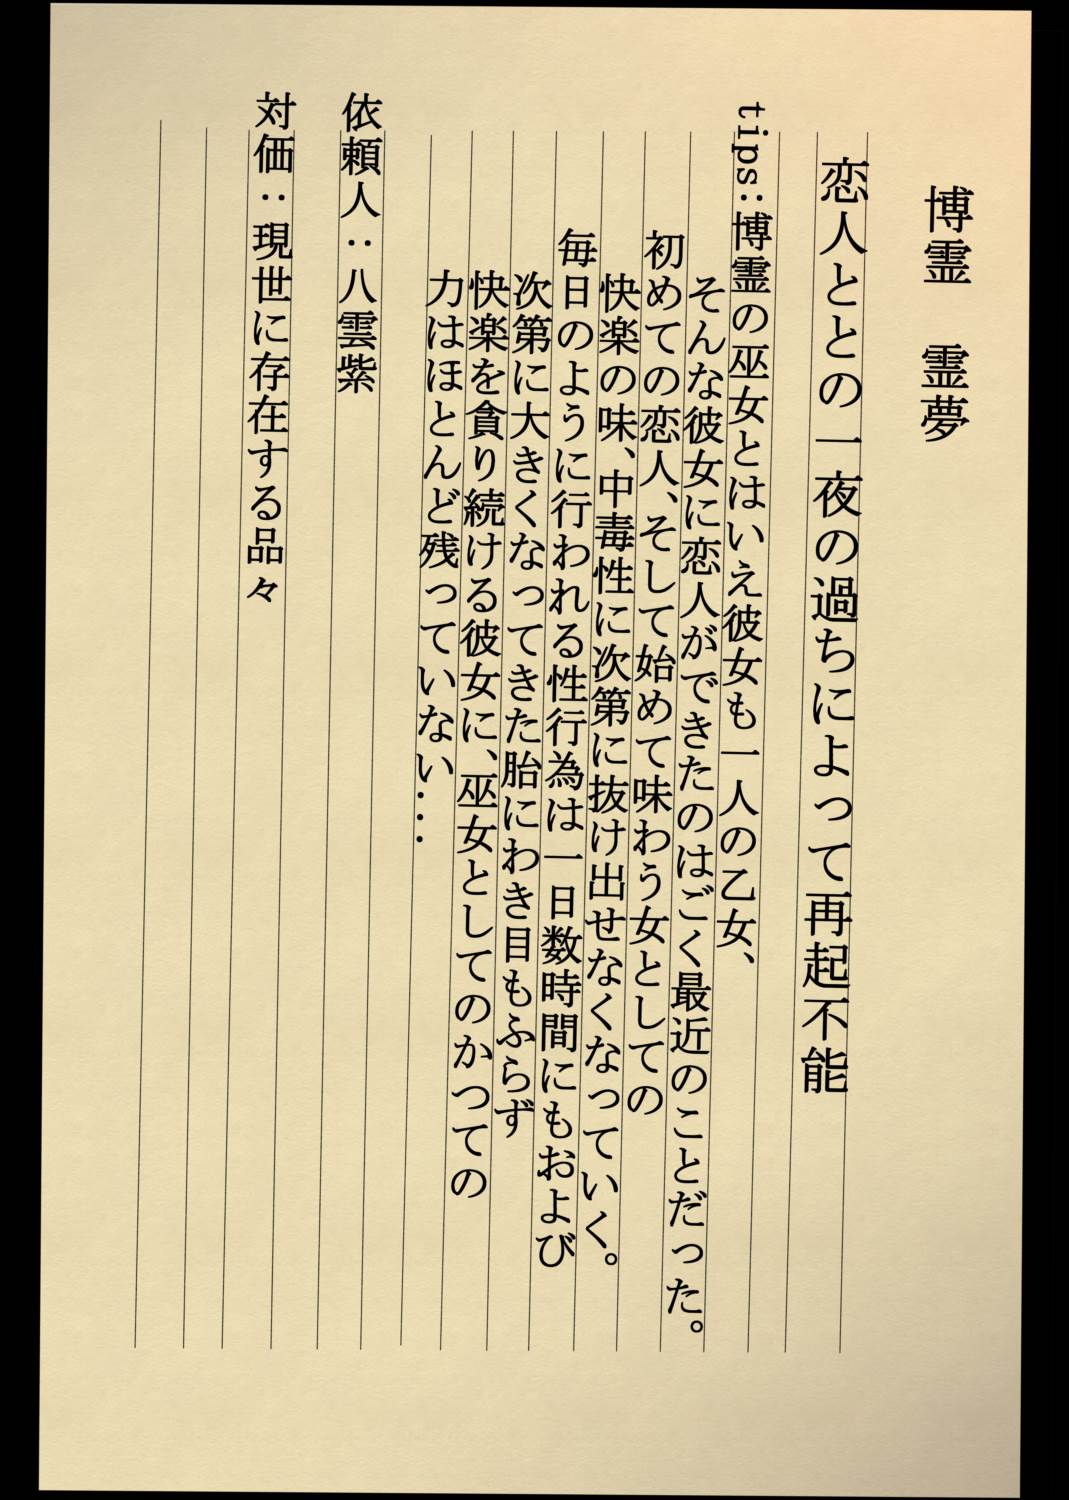 博霊　霊夢
恋人ととの一夜の過ちによって再起不能
tips:博霊の巫女とはいえ彼女も一人の乙女、
そんな彼女に恋人ができたのはごく最近のことだった。
初めての恋人、そして始めて味わう女としての
快楽の味、中毒性に次第に抜け出せなくなっていく。
毎日のように行われる性行為は一日数時間にもおよび
次第に大きくなってきた胎にわき目もふらず
快楽を貪り続ける彼女に、巫女としてのかつての
力はほとんど残っていない....
依頼人：八雲紫
対価：現世に存在する品々